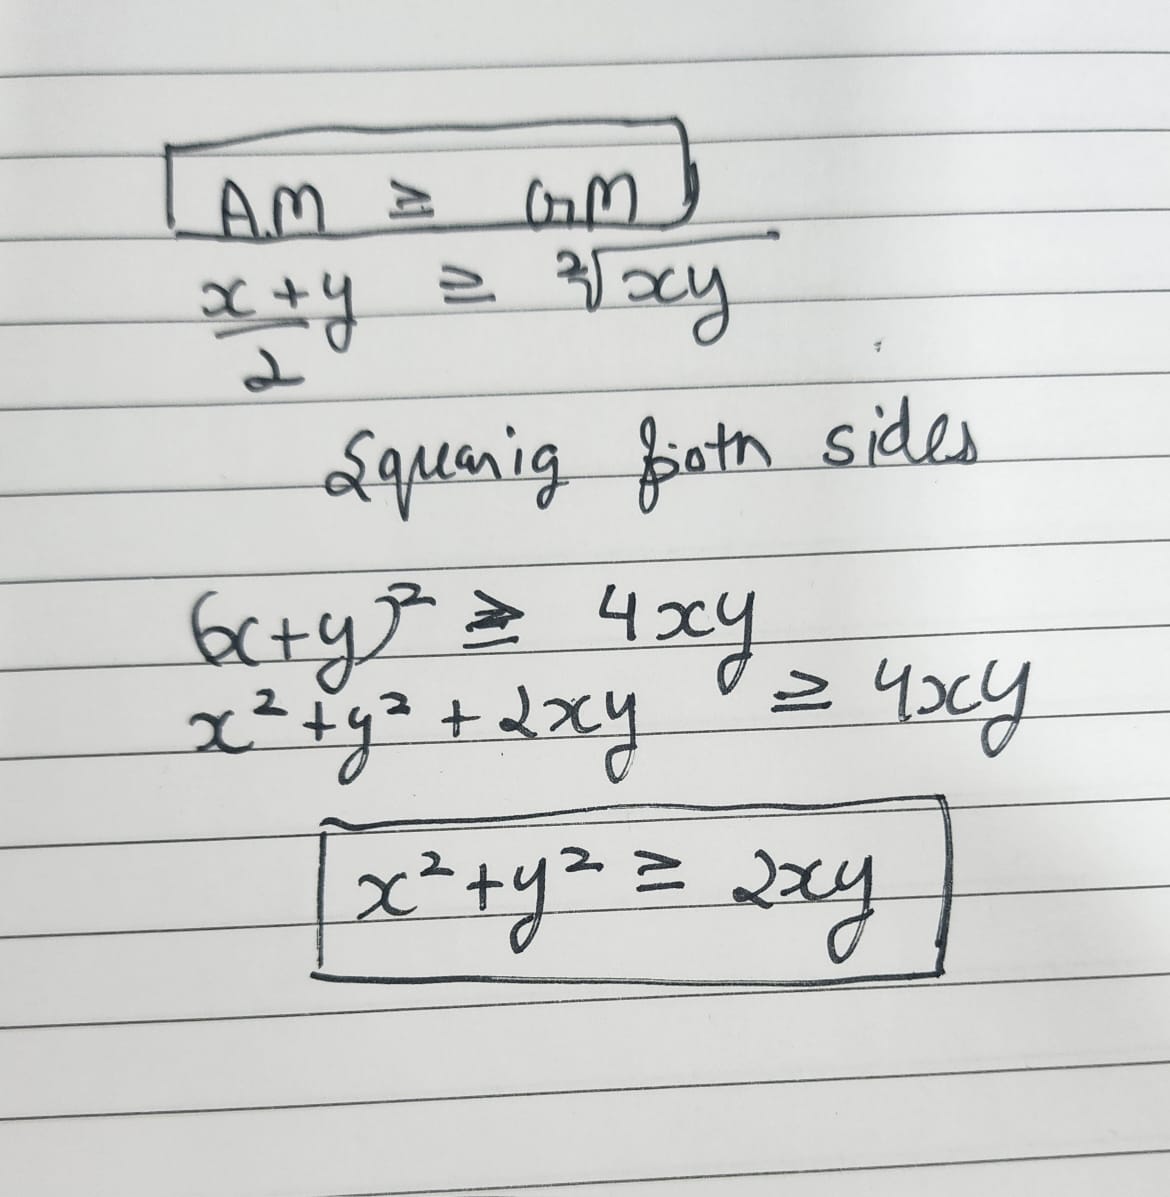 A.M ≥ GM
x+y/2 ≥ ²√xy
Squaring both sides
(x+y)² ≥ 4xy
x²+y²+2xy ≥ 4xy
x²+y² ≥ 2xy